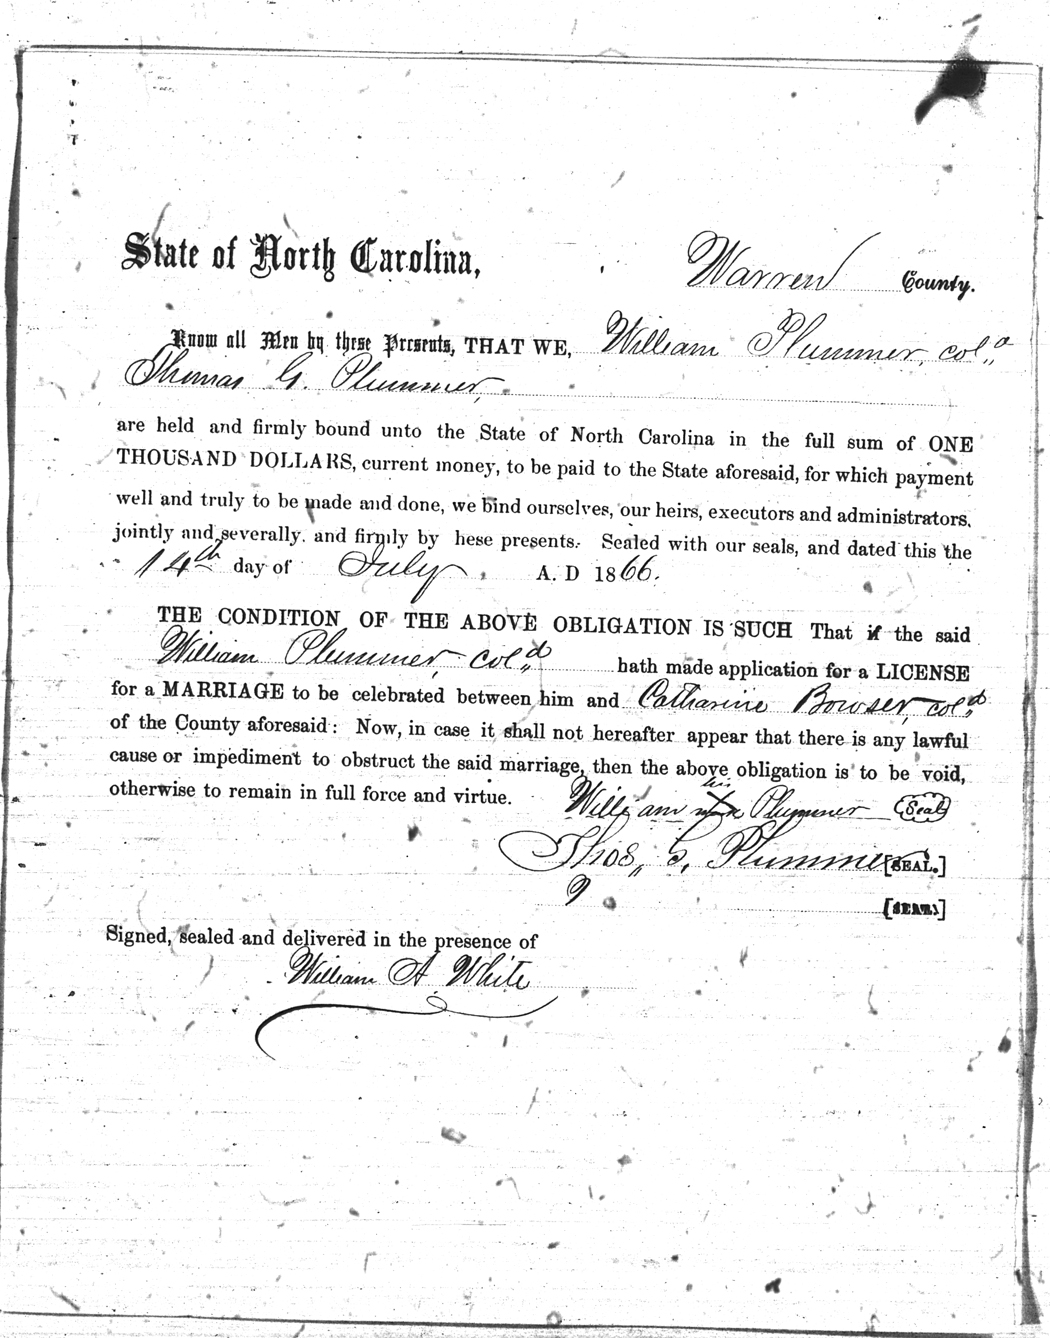 State of North Carolina, Warren County.
Know all Men by these Presents, THAT WE, William Plummer, col,,d
Thomas G. Plummer,
are held and firmly bound unto the State of North Carolina in the full sum of ONE
THOUSAND DOLLARS, current money, to be paid to the State aforesaid, for which payment
well and truly to be made and done, we bind ourselves, our heirs, executors and administrators,
jointly and severally, and firmly by hese presents. Sealed with our seals, and dated this the
14th day of July A. D 1866.
THE CONDITION OF THE ABOVE OBLIGATION IS SUCH That if the said
William Plummer, col,,d hath made application for a LICENSE
for a MARRIAGE to be celebrated between him and Catharine Bowser, col,,d
of the County aforesaid: Now, in case it shall not hereafter appear that there is any lawful
cause or impediment to obstruct the said marriage, then the above obligation is to be void,
otherwise to remain in full force and virtue.
his
William X Plummer Seal
Thos,, G. Plummer [SEAL.]
[SEAL.]
Signed, sealed and delivered in the presence of
William A White